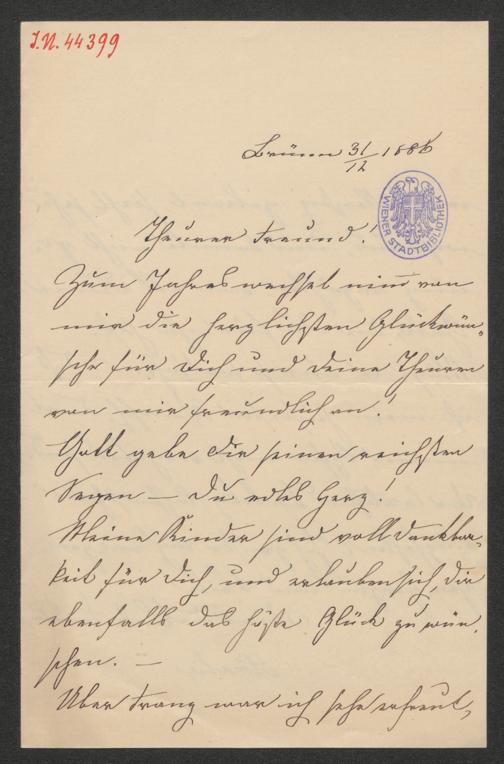 I.N. 44399
Brünn 31/12 1886
WIENER STADTBIBLIOTHEK
Theurer Freund!
Zum Jahreswechsel nim̅ von
mir die herzlichsten Glückwün-
sche für Dich und Deine Theuren
von mir freundlich an!
Gott gebe Dir seinen reichsten
Segen — Du edles Herz!
Meine Kinder sind voll Dankbar-
keit für Dich, und erlauben sich, Dir
ebenfalls das höste Glück zu wün-
schen. —
Über Franz war ich sehr erfreut,